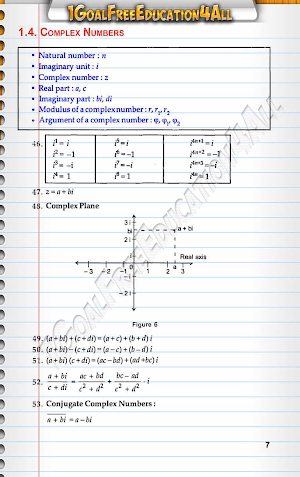 1GOALFREEEDUCATION4ALL
1.4. COMPLEX NUMBERS
• Natural number : n
• Imaginary unit : i
• Complex number : z
• Real part : a, c
• Imaginary part : bi, di
• Modulus of a complex number : r, r₁, r₂
• Argument of a complex number : φ, φ₁, φ₂
46. i¹ = i i⁵ = i i⁴ⁿ⁺¹ = i
i² = −1 i⁶ = −1 i⁴ⁿ⁺² = −1
i³ = −i i⁷ = −i i⁴ⁿ⁺³ = −i
i⁴ = 1 i⁸ = 1 i⁴ⁿ = 1
47. z = a + bi
48. Complex Plane
3 i
bi a + bi
2 i
i
Real axis
−3 −2 −1 0 1 2 a 3
−i
−2 i
Figure 6
49. (a + bi) + (c + di) = (a + c) + (b + d) i
50. (a + bi) − (c + di) = (a − c) + (b − d) i
51. (a + bi) (c + di) = (ac − bd) + (ad + bc) i
52. (a + bi)/(c + di) = (ac + bd)/(c² + d²) + (bc − ad)/(c² + d²) · i
53. Conjugate Complex Numbers :
a + bi = a − bi
7
GOALFREEEDUCATION4ALL